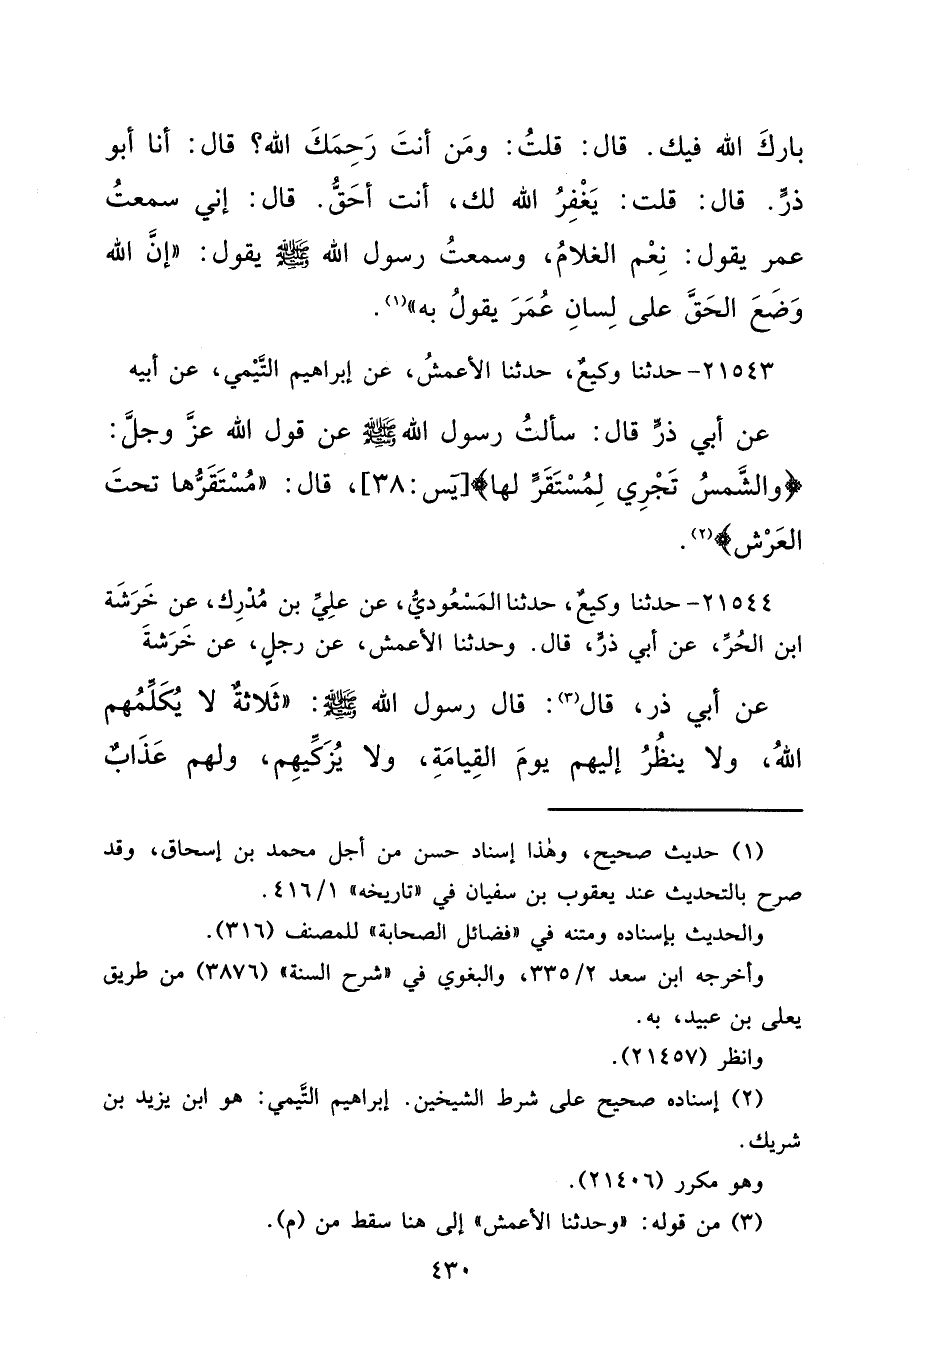 باركَ الله فيك. قال: قلتُ: ومَن أنتَ رَحِمَكَ الله؟ قال: أنا أبو
ذرٍّ. قال: قلت: يَغْفِرُ الله لك، أنت أحَقُّ. قال: إني سمعتُ
عمر يقول: نِعْم الغلامُ، وسمعتُ رسول الله ﷺ يقول: «إنَّ الله
وَضَعَ الحَقَّ على لِسانِ عُمَرَ يقولُ به»(١).
٢١٥٤٣- حدثنا وكيعٌ، حدثنا الأعمشُ، عن إبراهيم التَّيْمي، عن أبيه
عن أبي ذرٍّ قال: سألتُ رسول الله ﷺ عن قول الله عزَّ وجلَّ:
﴿والشَّمسُ تَجْرِي لِمُسْتَقَرٍّ لها﴾[يَس:٣٨]، قال: «مُسْتَقَرُّها تحتَ
العَرْش﴾(٢).
٢١٥٤٤- حدثنا وكيعٌ، حدثنا المَسْعُوديُّ، عن علِيِّ بن مُدْرِك، عن خَرَشَة
ابن الحُرِّ، عن أبي ذرٍّ، قال. وحدثنا الأعمش، عن رجلٍ، عن خَرَشةَ
عن أبي ذر، قال(٣): قال رسول الله ﷺ: «ثَلاثةٌ لا يُكَلِّمُهم
اللهُ، ولا ينظُرُ إليهم يومَ القِيامَةِ، ولا يُزَكِّيهِم، ولهم عَذَابٌ
(١) حديث صحيح، وهٰذا إسناد حسن من أجل محمد بن إسحاق، وقد
صرح بالتحديث عند يعقوب بن سفيان في «تاريخه» ٤١٦/١.
والحديث بإسناده ومتنه في «فضائل الصحابة» للمصنف (٣١٦).
وأخرجه ابن سعد ٣٣٥/٢، والبغوي في «شرح السنة» (٣٨٧٦) من طريق
يعلى بن عبيد، به.
وانظر (٢١٤٥٧).
(٢) إسناده صحيح على شرط الشيخين. إبراهيم التَّيمي: هو ابن يزيد بن
شريك.
وهو مكرر (٢١٤٠٦).
(٣) من قوله: «وحدثنا الأعمش» إلى هنا سقط من (م).
٤٣٠